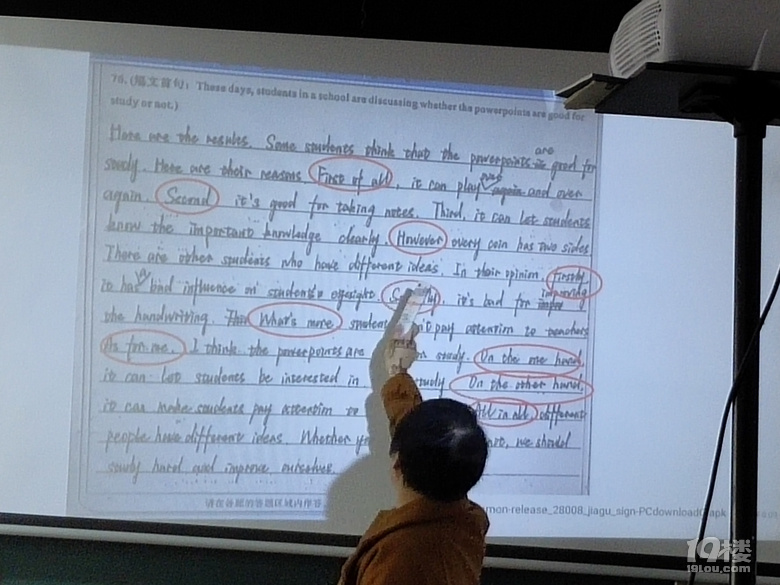 76. (短文首句: These days, students in a school are discussing whether the powerpoints are good for
study or not.)
Here are the results. Some students think that the powerpoints is are good for
study. Here are their reasons. First of all, it can play over again and over
again. Second it's good for taking notes. Third, it can let students
know the important knowledge clearly. However every coin has two sides
There are other students who have different ideas. In their opinion, firstly
it has a bad influence on students's eyesight. it's bad for improving
the handwriting. What's more students pay attention to teachers
As for me, I think the powerpoints are study. On the one hand,
it can let students be interested in study On the other hand,
it can make students pay attention to All in all, different
people have different ideas. Whether we should
study hard and improve ourselves.
请在各题的答题区域内作答
mon-release_28008_jiagu_sign-PCdownload apk
19楼
19lou.com